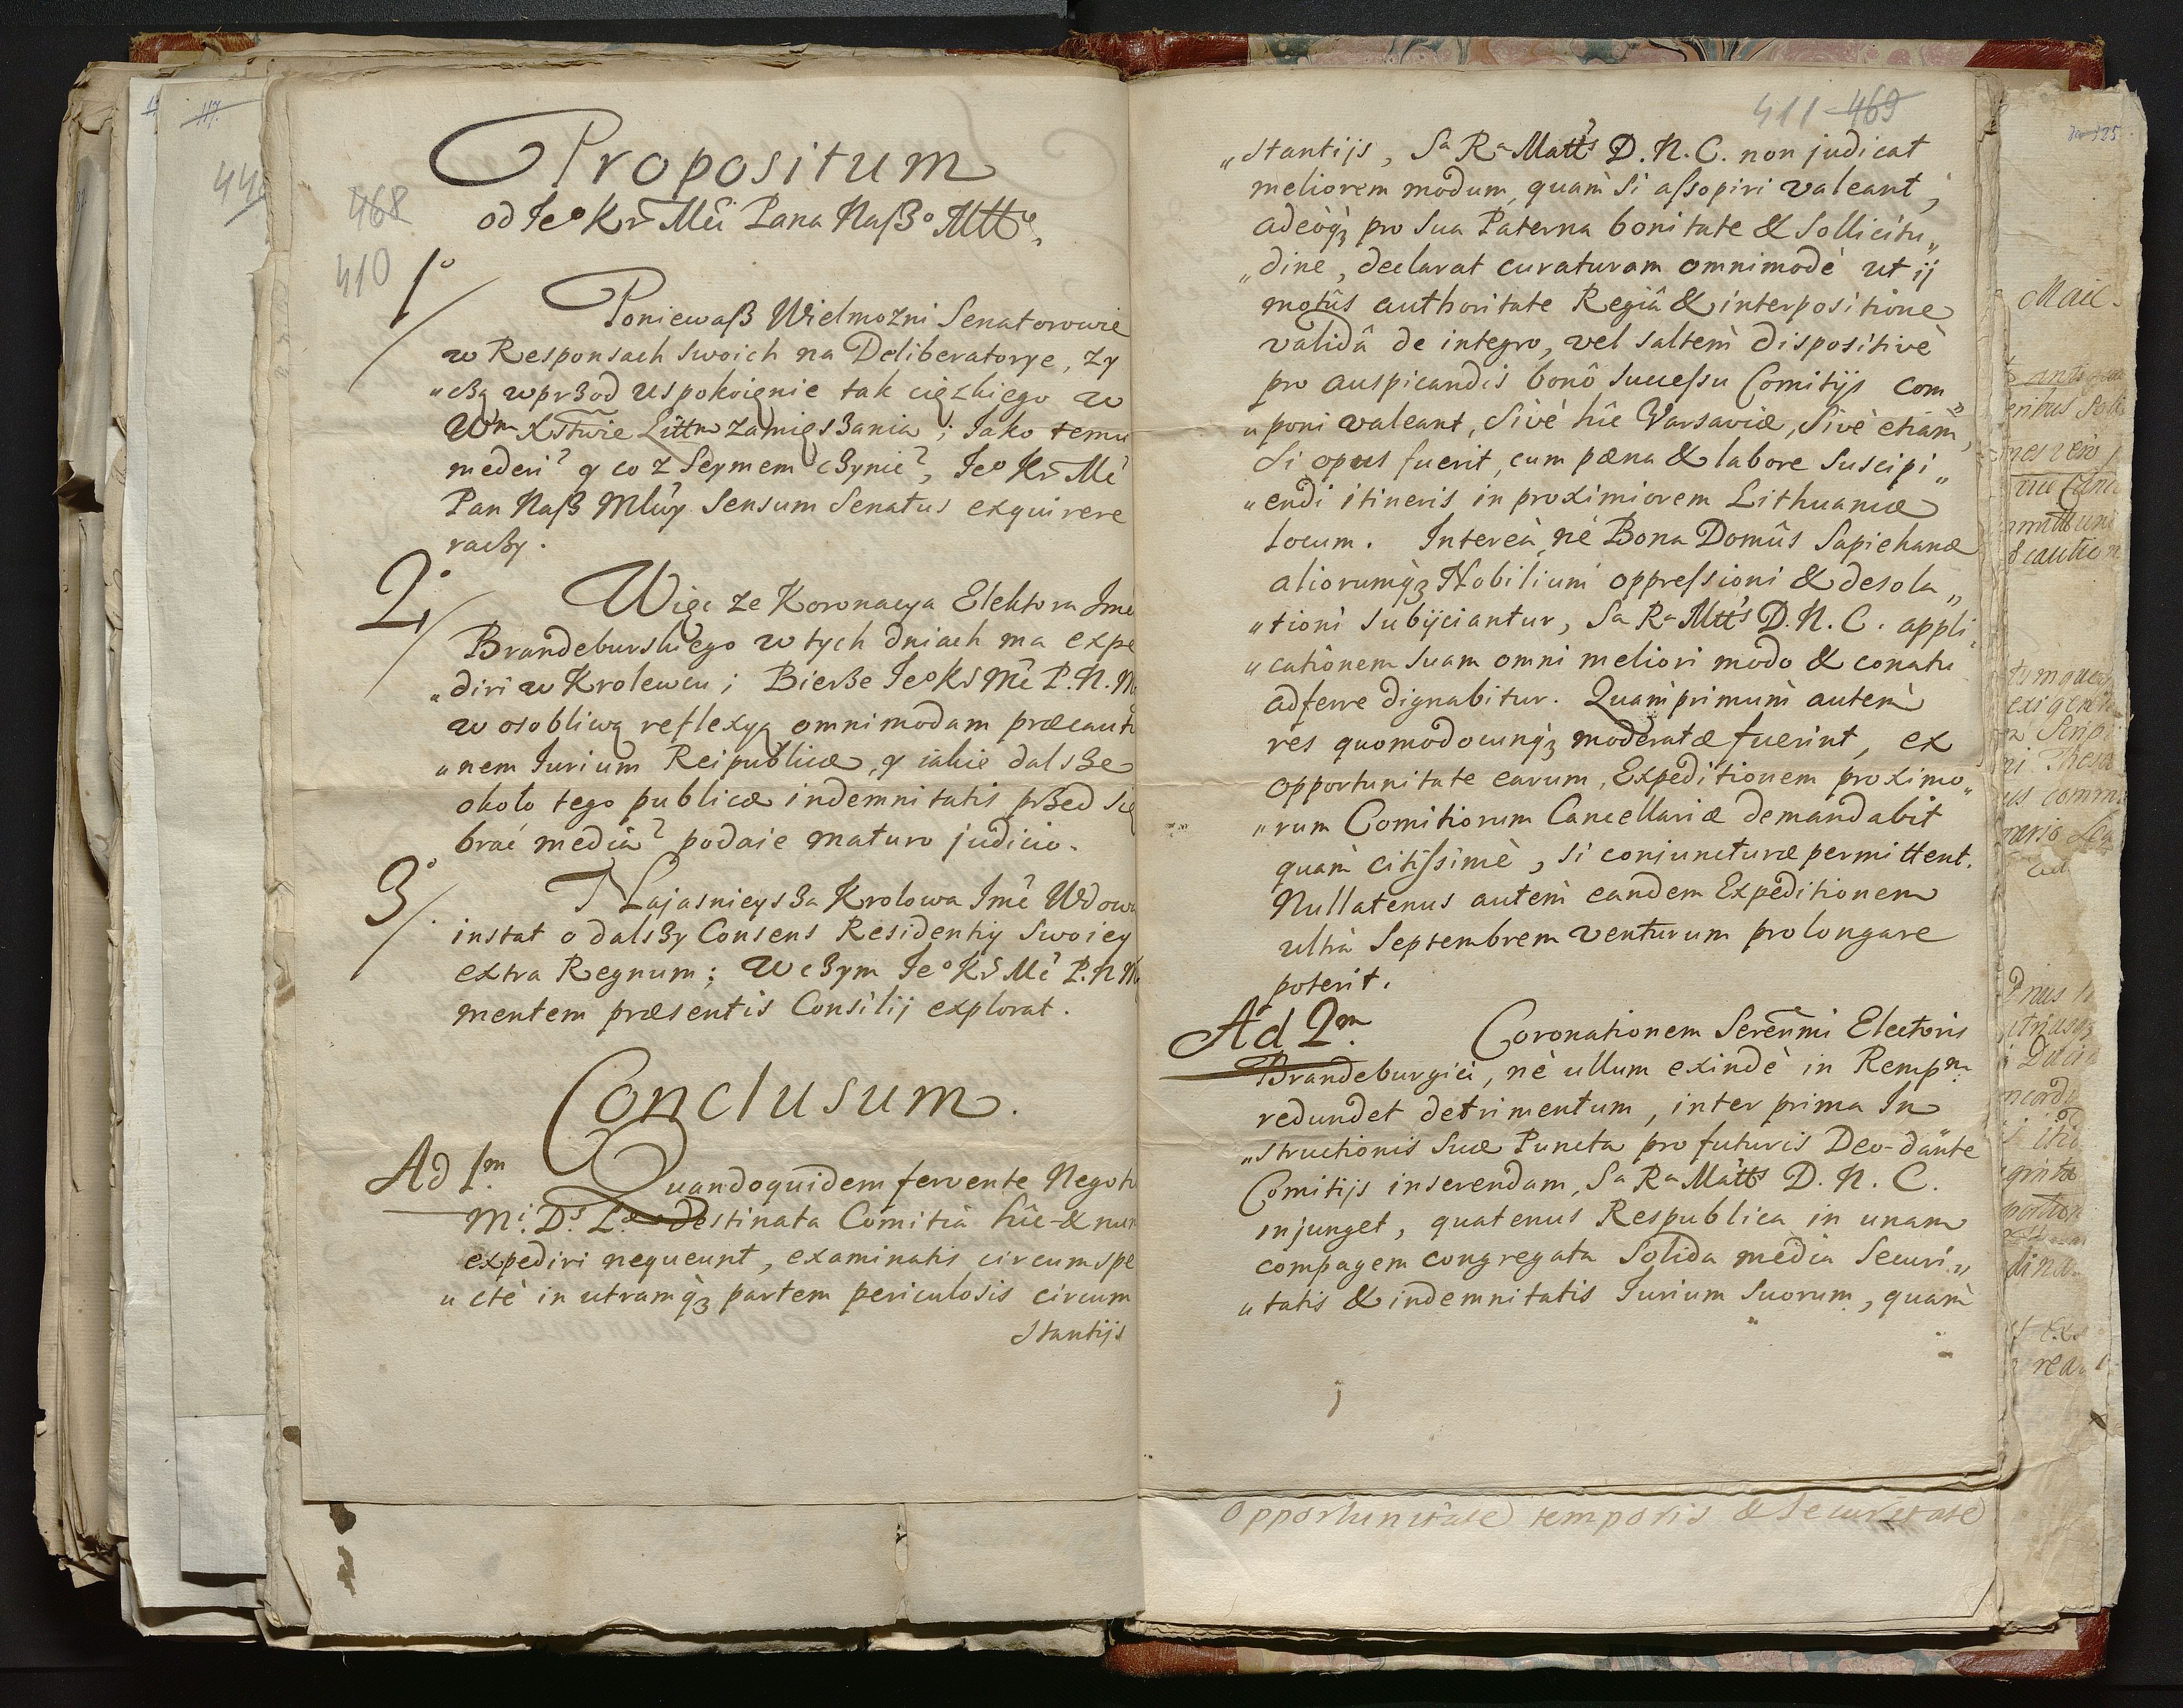 468
410
Propositum
od Ieº Kr Mci Pana Naßº Mttº.
1º
Poniewaß Wielmozni Senatorowie
w Responsach swoich na Deliberatorye, zy
„cżą wprżod uspokoięnie tak cięzkiego w
Wm Xstwie Littm zamięsżania; Iako temu
mederi? y co z Seymem cżynić?, Ieº Kr Mć
Pan Naß Mlwy Sensum Senatus exquirere
racży.
2º
Więc ze Koronacya Elektora Ime
Brandeburskiego w tych dniach ma expe
„diri w Krolewcu; Bierże Ieº Kr Mć P. N. M
w osobliwą reflexyą omnimodam præcauti
„nem Iurium Reipublicæ, y iakie dalsże
około tego publicæ indemnitatis prżed się
brać media? podaie maturo judicio.
3º
Najasnieysża Krolowa Imć Wdowa
instat o dalsży Consens Residentiy swoiey
extra Regnum; W cżym Ieº Kr Mć P. N. M
mentem præsentis Consilij explorat.
Conclusum.
Ad 1m
Quandoquidem fervente Negoti
Mi Ds Læ destinata Comitia hîc & nun
expediri nequeunt, examinatis circumspe
„ctè in utramqȝ partem periculosis circum
stantijs
411 - 469
„stantijs, Sa Ra Matts D. N. C. non judicat
meliorem modum, quam si assopiri valeant,
adeòqȝ pro sua Paterna bonitate & sollicitu„
„dine, declarat curaturam omnimodè ut ij
motûs authoritate Regiâ & interpositione
validâ de integro, vel saltem dispositivè
pro auspicandis bonô successu Comitijs com„
„poni valeant, sivè hîc Varsaviæ, sivè etiam,
si opus fuerit, cum pæna & labore suscipi„
„endi itineris in proximiorem Lithuaniæ
locum. Intereà nè Bona Domûs Sapiehanæ
aliorumqȝ Nobilium oppressioni & desola„
„tioni subijciantur, Sa Ra Mtts D. N. C. appli„
„cationem suam omni meliori modo & conatu
adferre dignabitur. Quamprimum autem
res quomodocunqȝ moderatæ fuerint, ex
opportunitate earum, Expeditionem proximo„
„rum Comitiorum Cancellariæ demandabit
quam citissimè, si conjuncturæ permittent.
Nullatenus autem eandem Expeditionem
ultrà Septembrem venturum prolongare
poterit.
Ad 2m
Coronationem Serenmi Electoris
Brandeburgici, nè ullum exindè in Rempm
redundet detrimentum, inter prima In
„structionis suæ Puncta pro futuris Deo-dante
Comitijs inserendam, Sa Ra Matts D. N. C.
injunget, quatenus Respublica in unam
compagem congregata solida media securi„
„tatis & indemnitatis Iurium suorum, quam
opportunitate temporis & securitate